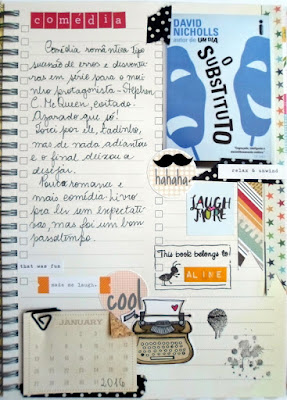 comédia
Comédia romântica tipo
sucessão de erros e desventu-
ras em série para o nos-
so protagonista - Stephen
C. McQueen, coitado.
Azarado que só!
Torci por ele, tadinho,
mas de nada adiantou
e o final deixou a
desejar.
Pouco romance e
mais comédia. Livro
pra ler sem expectati-
vas, mas foi um bom
passatempo.
that was fun
made me laugh.
DAVID
NICHOLLS
autor de UM DIA
O SUBSTITUTO
hahaha
relax & unwind
LAUGH
MORE
This book belongs to:
ALINE
cool
JANUARY
2016